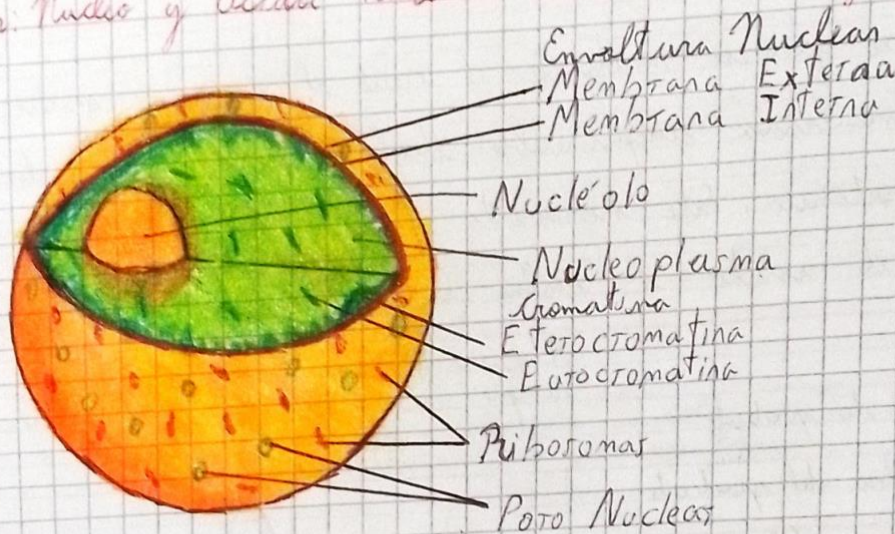 Nucleo y
Envoltura Nuclear
Membrana Externa
Membrana Interna
Nucléolo
Nucleoplasma
Cromatina
Eterocromatina
Eurocromatina
Ribosomas
Poro Nuclear